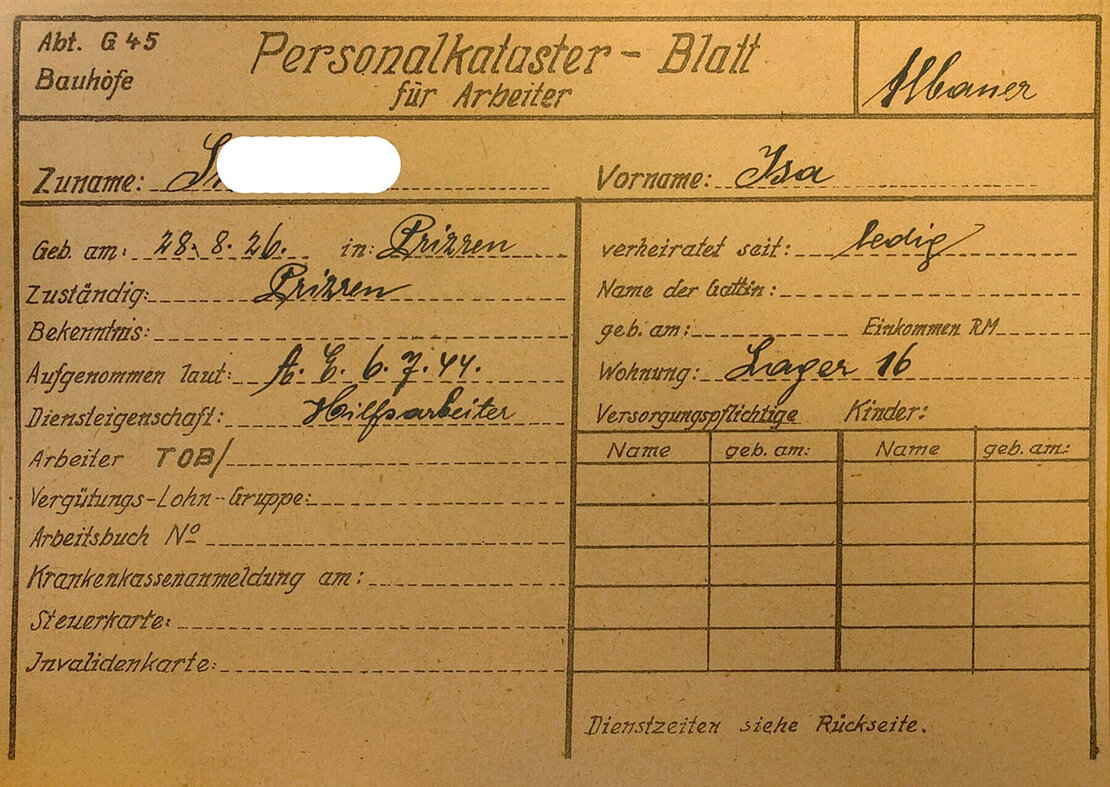 Abt. G 45
Bauhöfe
Personalkataster - Blatt
für Arbeiter
Albaner
Zuname:
Vorname: Isa
Geb. am: 28. 8. 26. in: Prizren
Zuständig: Prizren
Bekenntnis:
Aufgenommen laut: A. E. 6. 7. 44.
Diensteigenschaft: Hilfsarbeiter
Arbeiter TOB/
Vergütungs-Lohn-Gruppe:
Arbeitsbuch No
Krankenkassenanmeldung am:
Steuerkarte:
Invalidenkarte:
verheiratet seit: ledig
Name der Gattin:
geb. am: Einkommen RM
Wohnung: Lager 16
Versorgungspflichtige Kinder:
Name geb. am: Name geb. am:
Dienstzeiten siehe Rückseite.